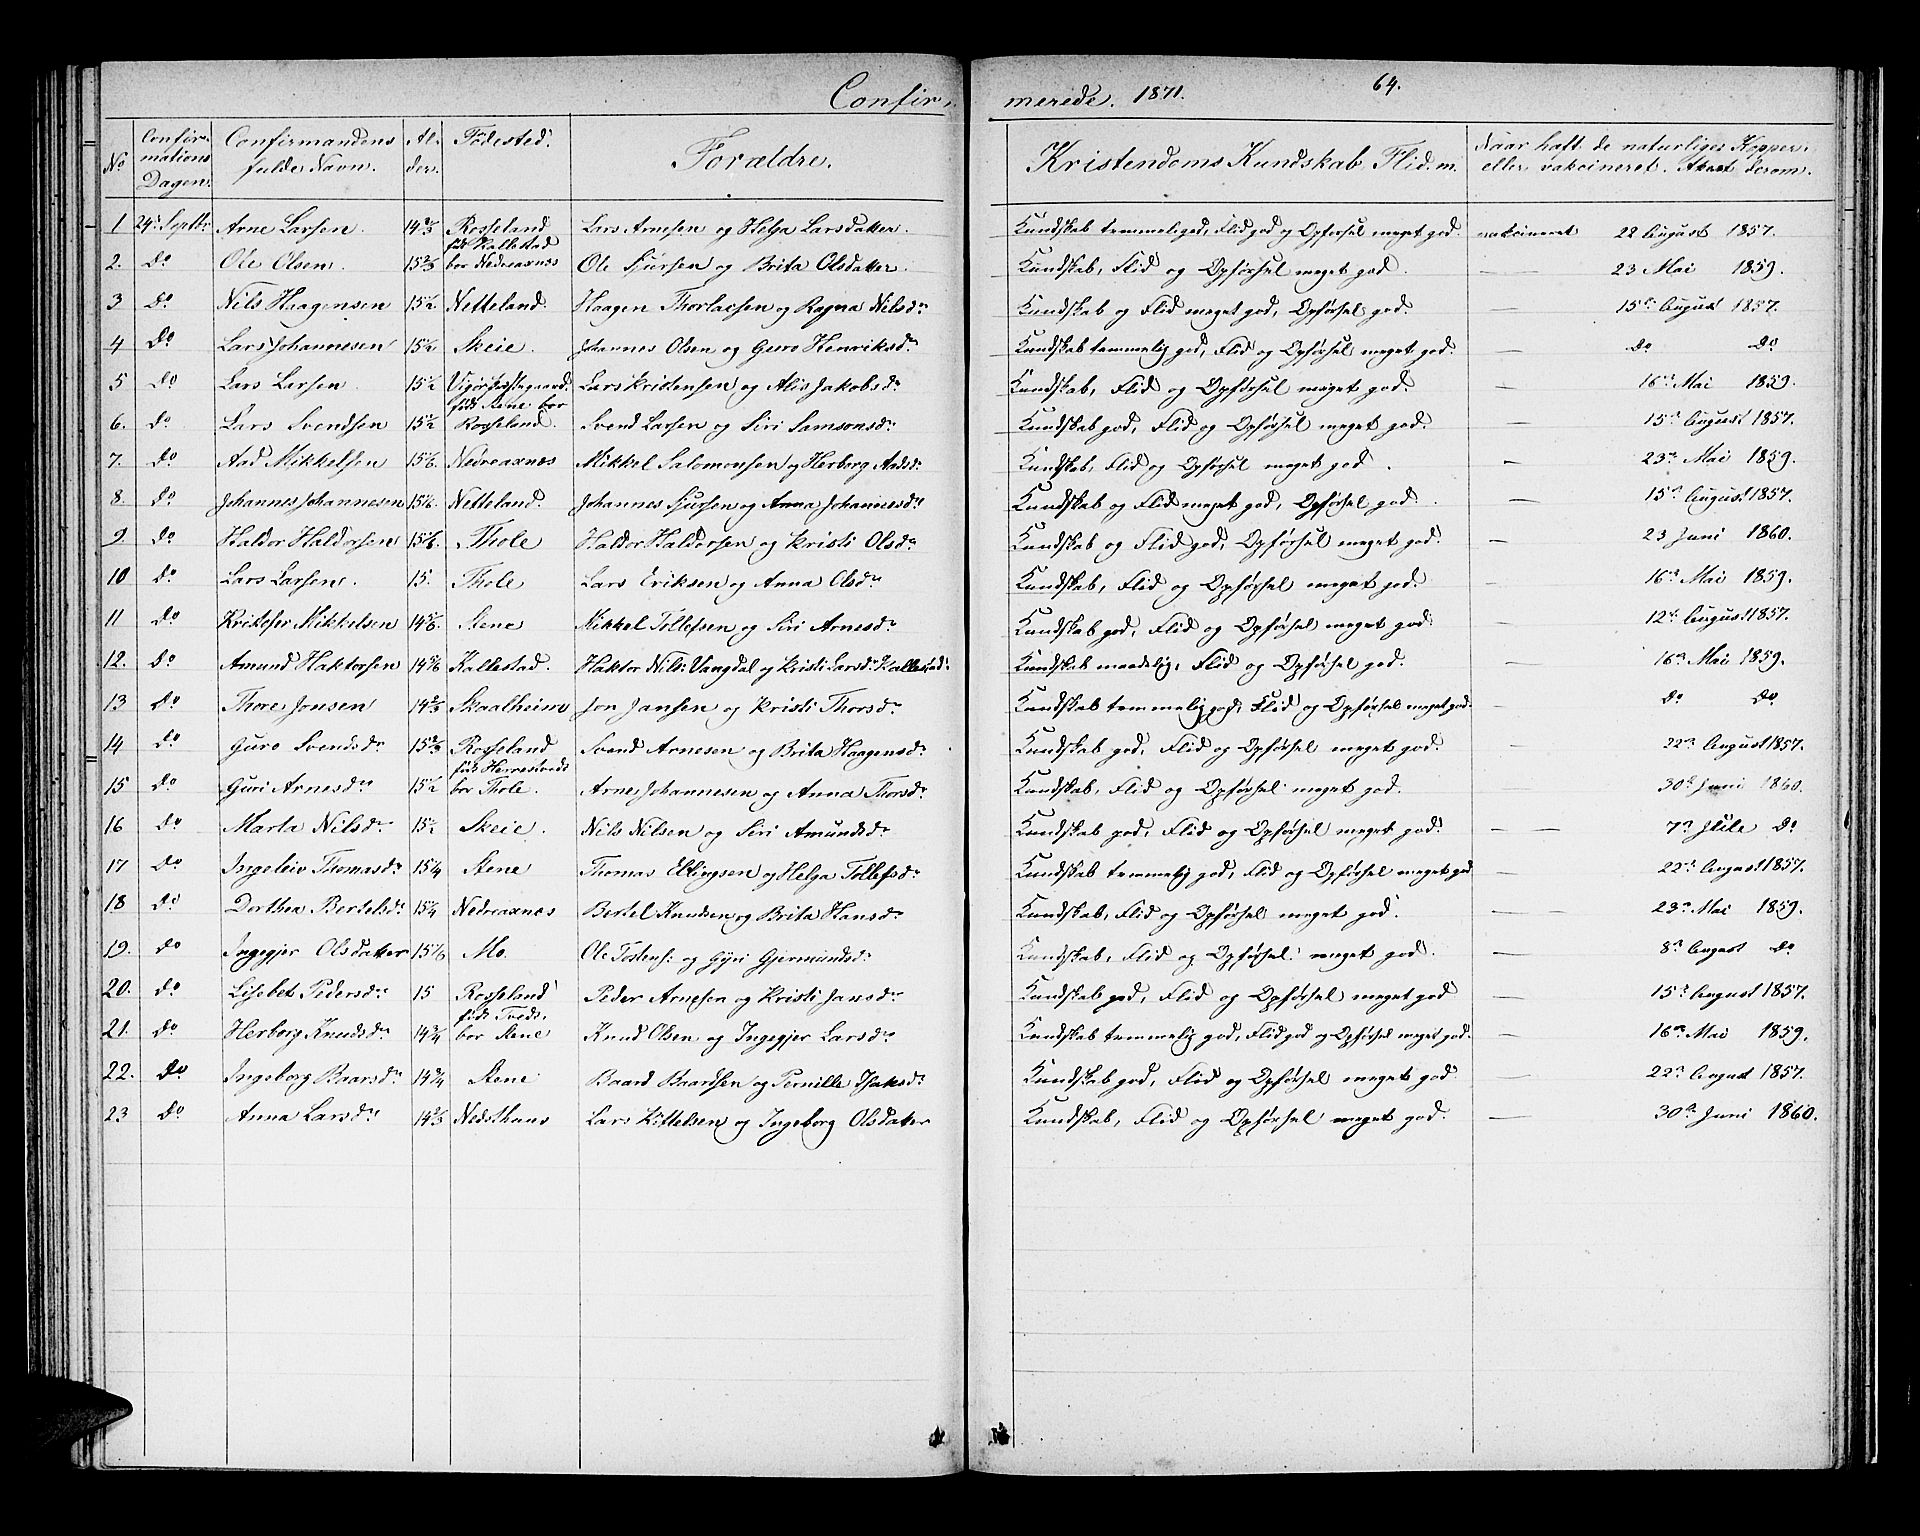 Confir-
merede. 1871. 64.
No Confir-mations Dagen. Confirmandens fulde Navn. Al-der. Fødested. Forældre. Kristendoms Kundskab, Flid m. Naar haft de naturlige Kopper, eller vakcineret. Attest derom.
1 24de Septbr Arne Larsen. 14 2/3 Rosseland Lars Arnesen og Helga Larsdatter. Kundskab temmelig god, Flid god og Opførsel meget god. vakcineret 22 August 1857.
2. Do Ole Olsen. 15 2/3 født Kallestad bor Nedreaxnes Ole Sjursen og Brita Olsdatter. Kundskab, Flid og Opførsel meget god. — 23 Mai 1859.
3 Do Nils Haagensen 15 1/2 Netteland. Haagen Thorlaesen og Ragna Nilsdr Kundskab og Flid meget god, Opførsel god. — 15de August 1857.
4 Do Lars Johannesen 15 1/2 Skeie. Johannes Olsen og Guro Henriksdr Kundskab temmelig god, Flid og Opførsel meget god. — Do Do
5 Do Lars Larsen. 15 1/2 Vigørpræstegaard. Lars Kristensen og Alis Jakobsdr Kundskab, Flid og Opførsel meget god. — 16de Mai 1859.
6. Do Lars Svendsen 15 1/2 født Stene bor Rosseland. Svend Larsen og Siri Samsonsdr Kundskab god, Flid og Opførsel meget god. — 15de August 1857.
7. Do Aad Mikkelsen 15 1/6. Nedreaxnes Mikkel Salomonsen og Herborg Aadsdr Kundskab, Flid og Opførsel meget god. — 23de Mai 1859.
8. Do Johannes Johannesen 15 1/6. Netteland. Johannes Sjursen og Anna Johannesdr Kundskab og Flid meget god, Opførsel god. — 15de August 1857.
9. Do Haldor Haldorsen 15 1/6. Thole Haldor Haldorsen og Kristi Olsdr Kundskab og Flid god, Opførsel meget god. — 23 Juni 1860.
10 Do Lars Larsen. 15. Thole Lars Eriksen og Anna Olsdr Kundskab, Flid og Opførsel meget god. — 16de Mai 1859.
11 Do Kristofer Mikkelsen 14 5/6. Stene Mikkel Tollefsen og Siri Arnesdr Kundskab god, Flid og Opførsel meget god. — 12te August 1857.
12. Do Amund Haktorsen 14 5/6 Kallestad. Haktor Nils: Vangdal og Kristi Larsdr Kallestad. Kundskab maadelig, Flid og Opførsel god. — 16de Mai 1859.
13 Do Thore Jonsen 14 2/3 Skaalheim Jon Jansen og Kristi Thorsdr Kundskab temmelig god, Flid og Opførsel meget god. — Do Do
14 Do Guro Svendsdr 15 2/3 Rosseland Svend Arnesen og Brita Haagensdr Kundskab god, Flid og Opførsel meget god. — 22de August 1857.
15 Do Guri Arnesdr 15 1/2 født Herrestveds bor Thole. Arne Johannesen og Anna Thorsdr Kundskab, Flid og Opførsel meget god. — 30te Juni 1860.
16 Do Marta Nilsdr 15 1/2 Skeie. Nils Nilsen og Siri Amundsdr Kundskab god, Flid og Opførsel meget god. — — 7de Jule Do
17 Do Ingeleiv Thomasdr 15 1/4 Stene Thomas Ellingsen og Helga Tollefsdr Kundskab temmelig god, Flid og Opførsel meget god — 22de August 1857.
18 Do Dorthea Bertelsdr 15 1/4 Nedreaxnes Bertel Knudsen og Brita Hansdr Kundskab, Flid og Opførsel meget god. — — 23de Mai 1859.
19. Do Ingegjer Olsdatter 15 1/6 Mo. Ole Tostens: og Gyri Gjermundsdr Kundskab, Flid og Opførsel meget god. — 8de August Do
20. Do Lisebet Pedersdr 15 Rosseland Peder Arnesen og Kristi Jansdr Kundskab god, Flid og Opførsel meget god — 15de August 1857.
21. Do Herborg Knudsdr 14 3/4 født Tveds, bor Stene Knud Olsen og Ingegjer Larsdr Kundskab temmelig god, Flid god og Opførsel meget god. — 16de Mai 1859.
22. Do Ingeborg Baarsdr 14 3/4 Stene Baard Baardsen og Pernille Isaksdr Kundskab god, Flid og Opførsel meget god. — 22de August 1857.
23 Do Anna Larsdr 14 2/3 Nedsthaus Lars Kittelsen og Ingeborg Olsdatter Kundskab, Flid og Opførsel meget god. — 30te Juni 1860.